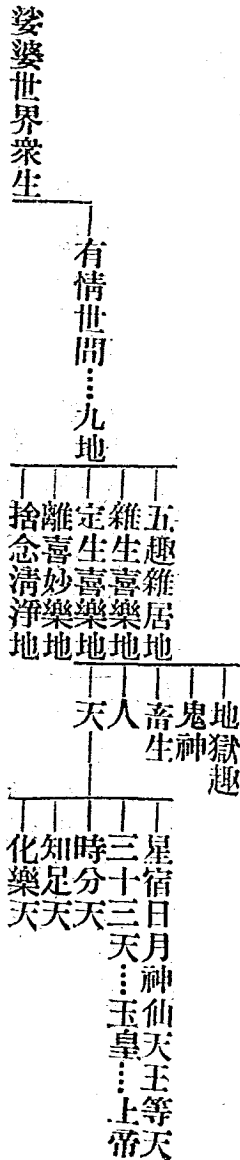 娑婆世界衆生
有情世間……九地
五趣雜居地
雜生喜樂地
定生喜樂地
離喜妙樂地
捨念淸淨地
地獄趣
鬼神
畜生
人
天
星宿日月神仙天王等天
三十三天……玉皇……上帝
時分天
知足天
化樂天